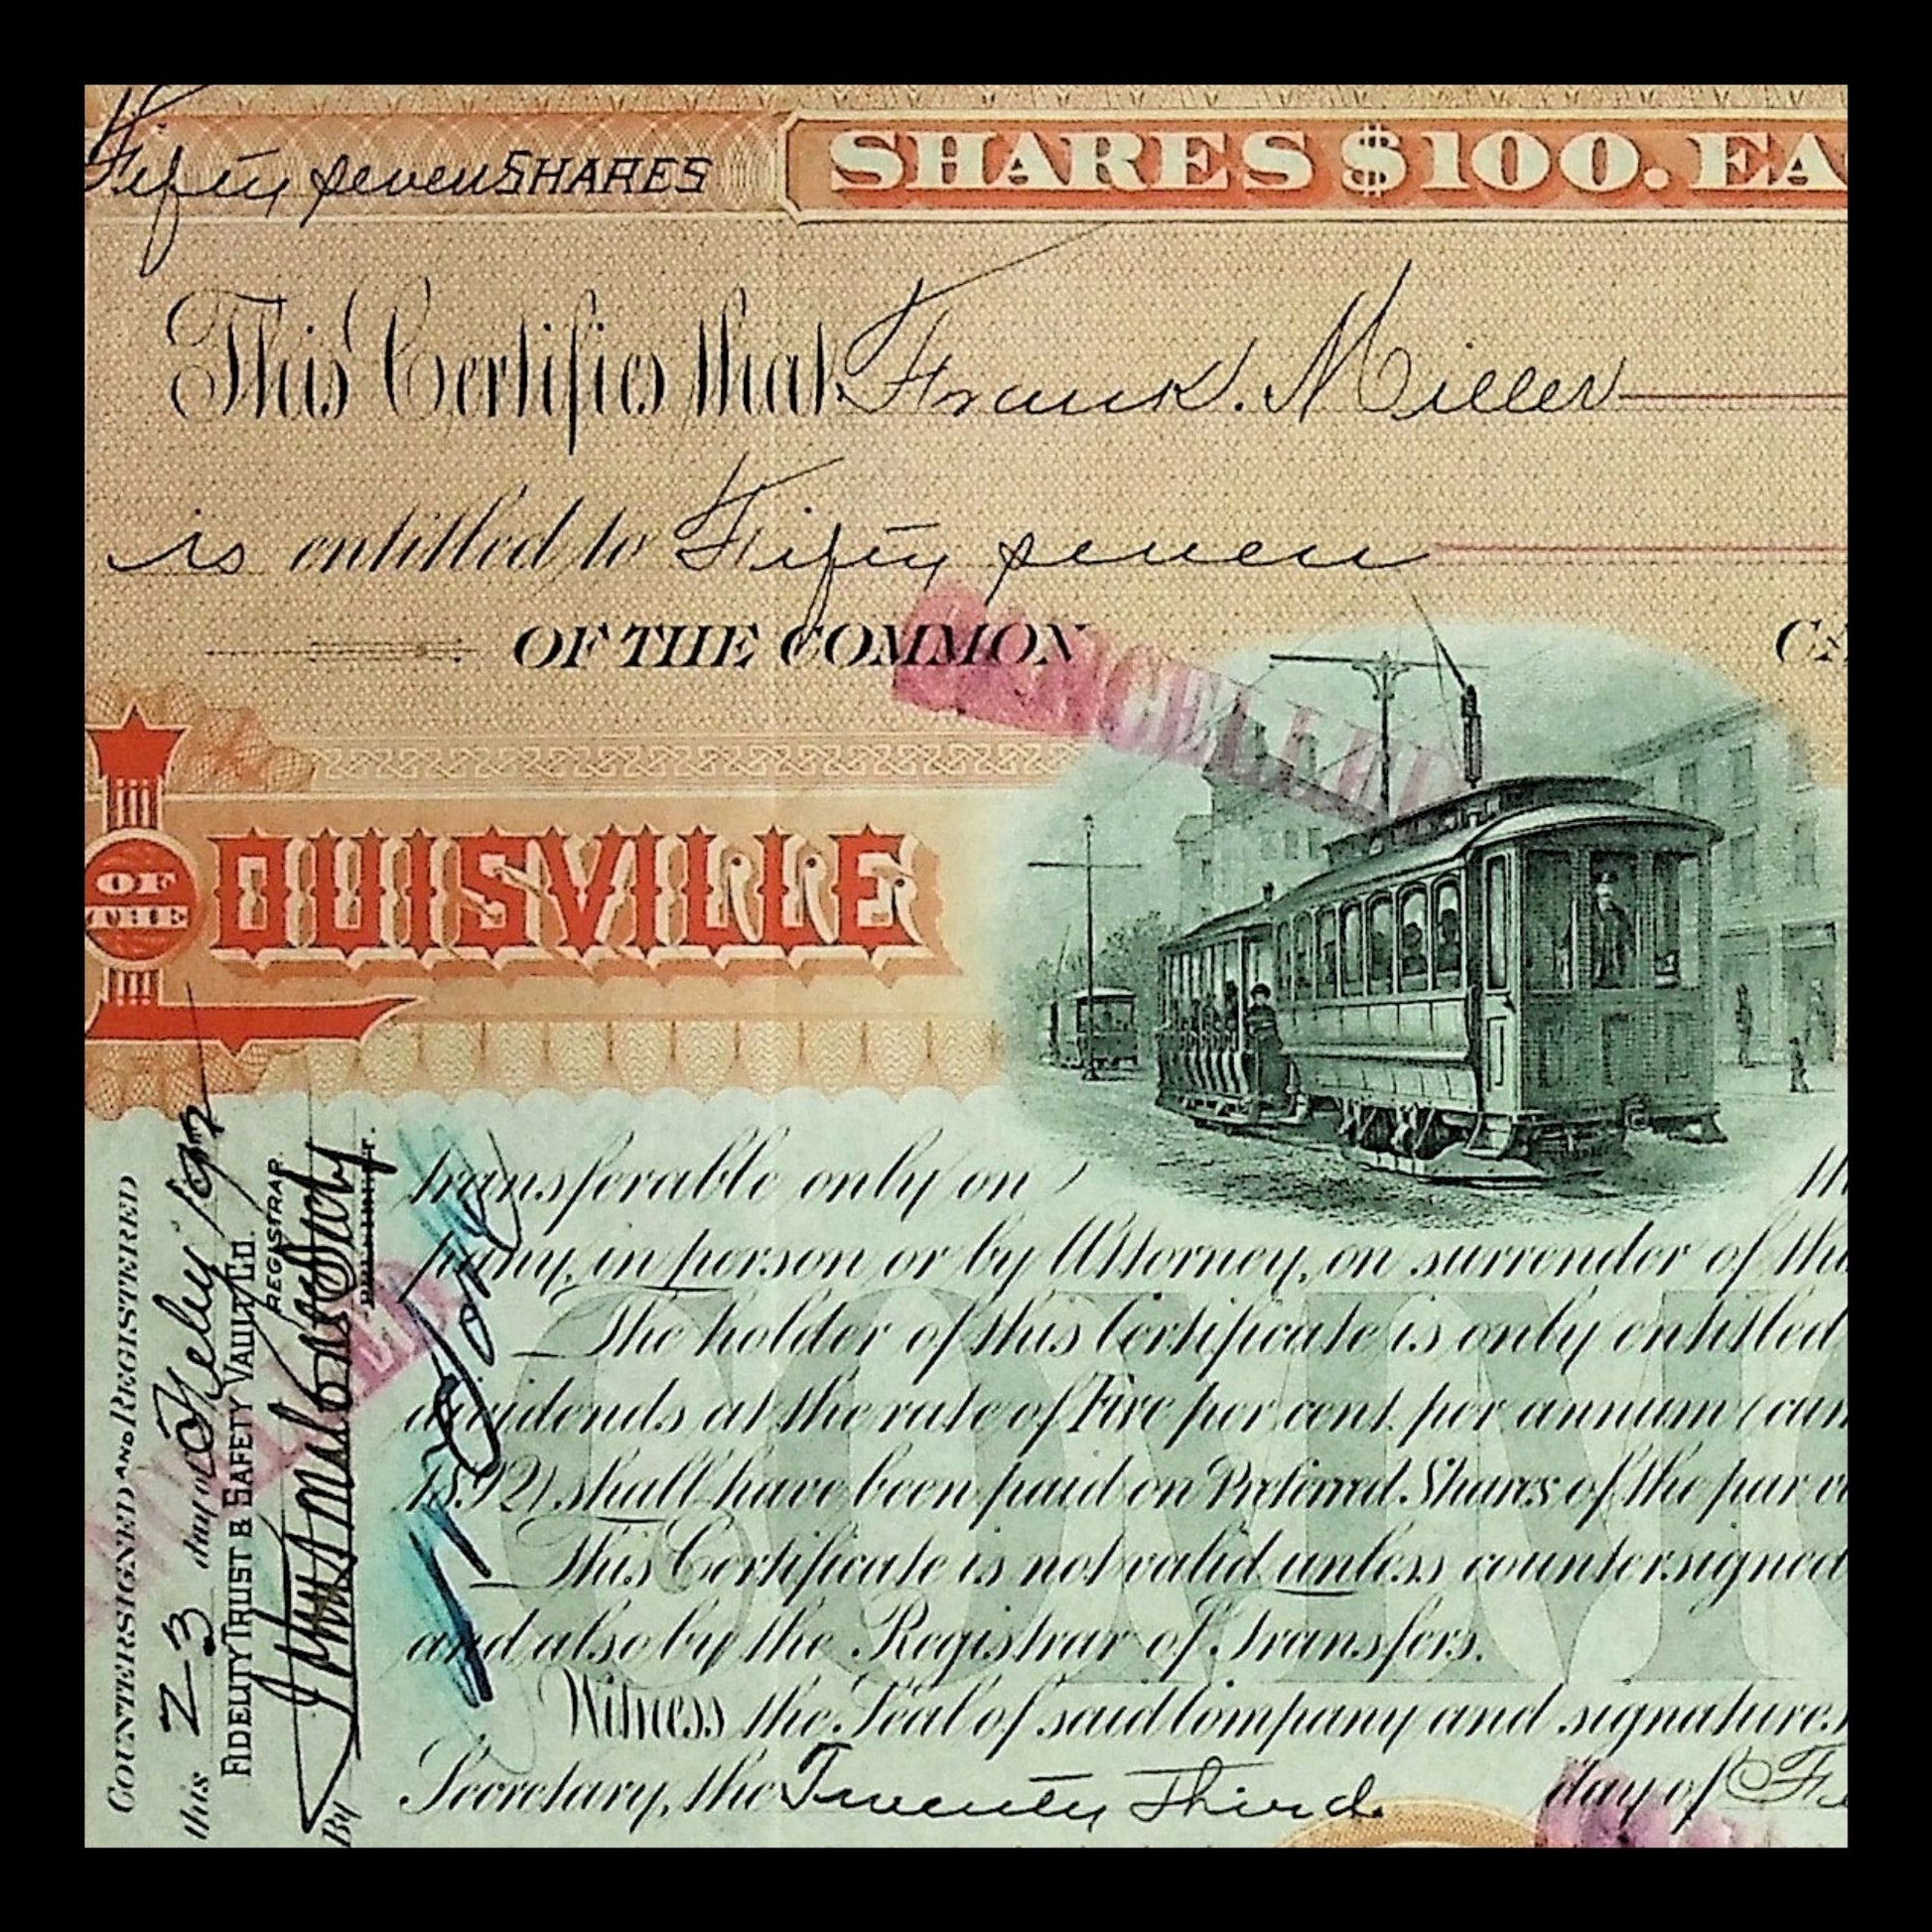 Fifty seven SHARES
SHARES $100. EA
This Certifies that Frank. Miller
is entitled to Fifty seven
OF THE COMMON CA
CANCELLED
OF THE LOUISVILLE
transferable only on th
pany, in person or by Attorney, on surrender of th
The holder of this Certificate is only entitled
dividends at the rate of Five per cent. per annum (cum
1892) shall have been paid on Preferred Shares of the par v
This Certificate is not valid unless countersigned
and also by the Registrar of Transfers.
Witness the Seal of said Company and signatures
Secretary, the Twenty Third day of Fe
COMM
COUNTERSIGNED AND REGISTERED
this 23 day of Feby
FIDELITY TRUST & SAFETY VAULT CO.
REGISTRAR.
By